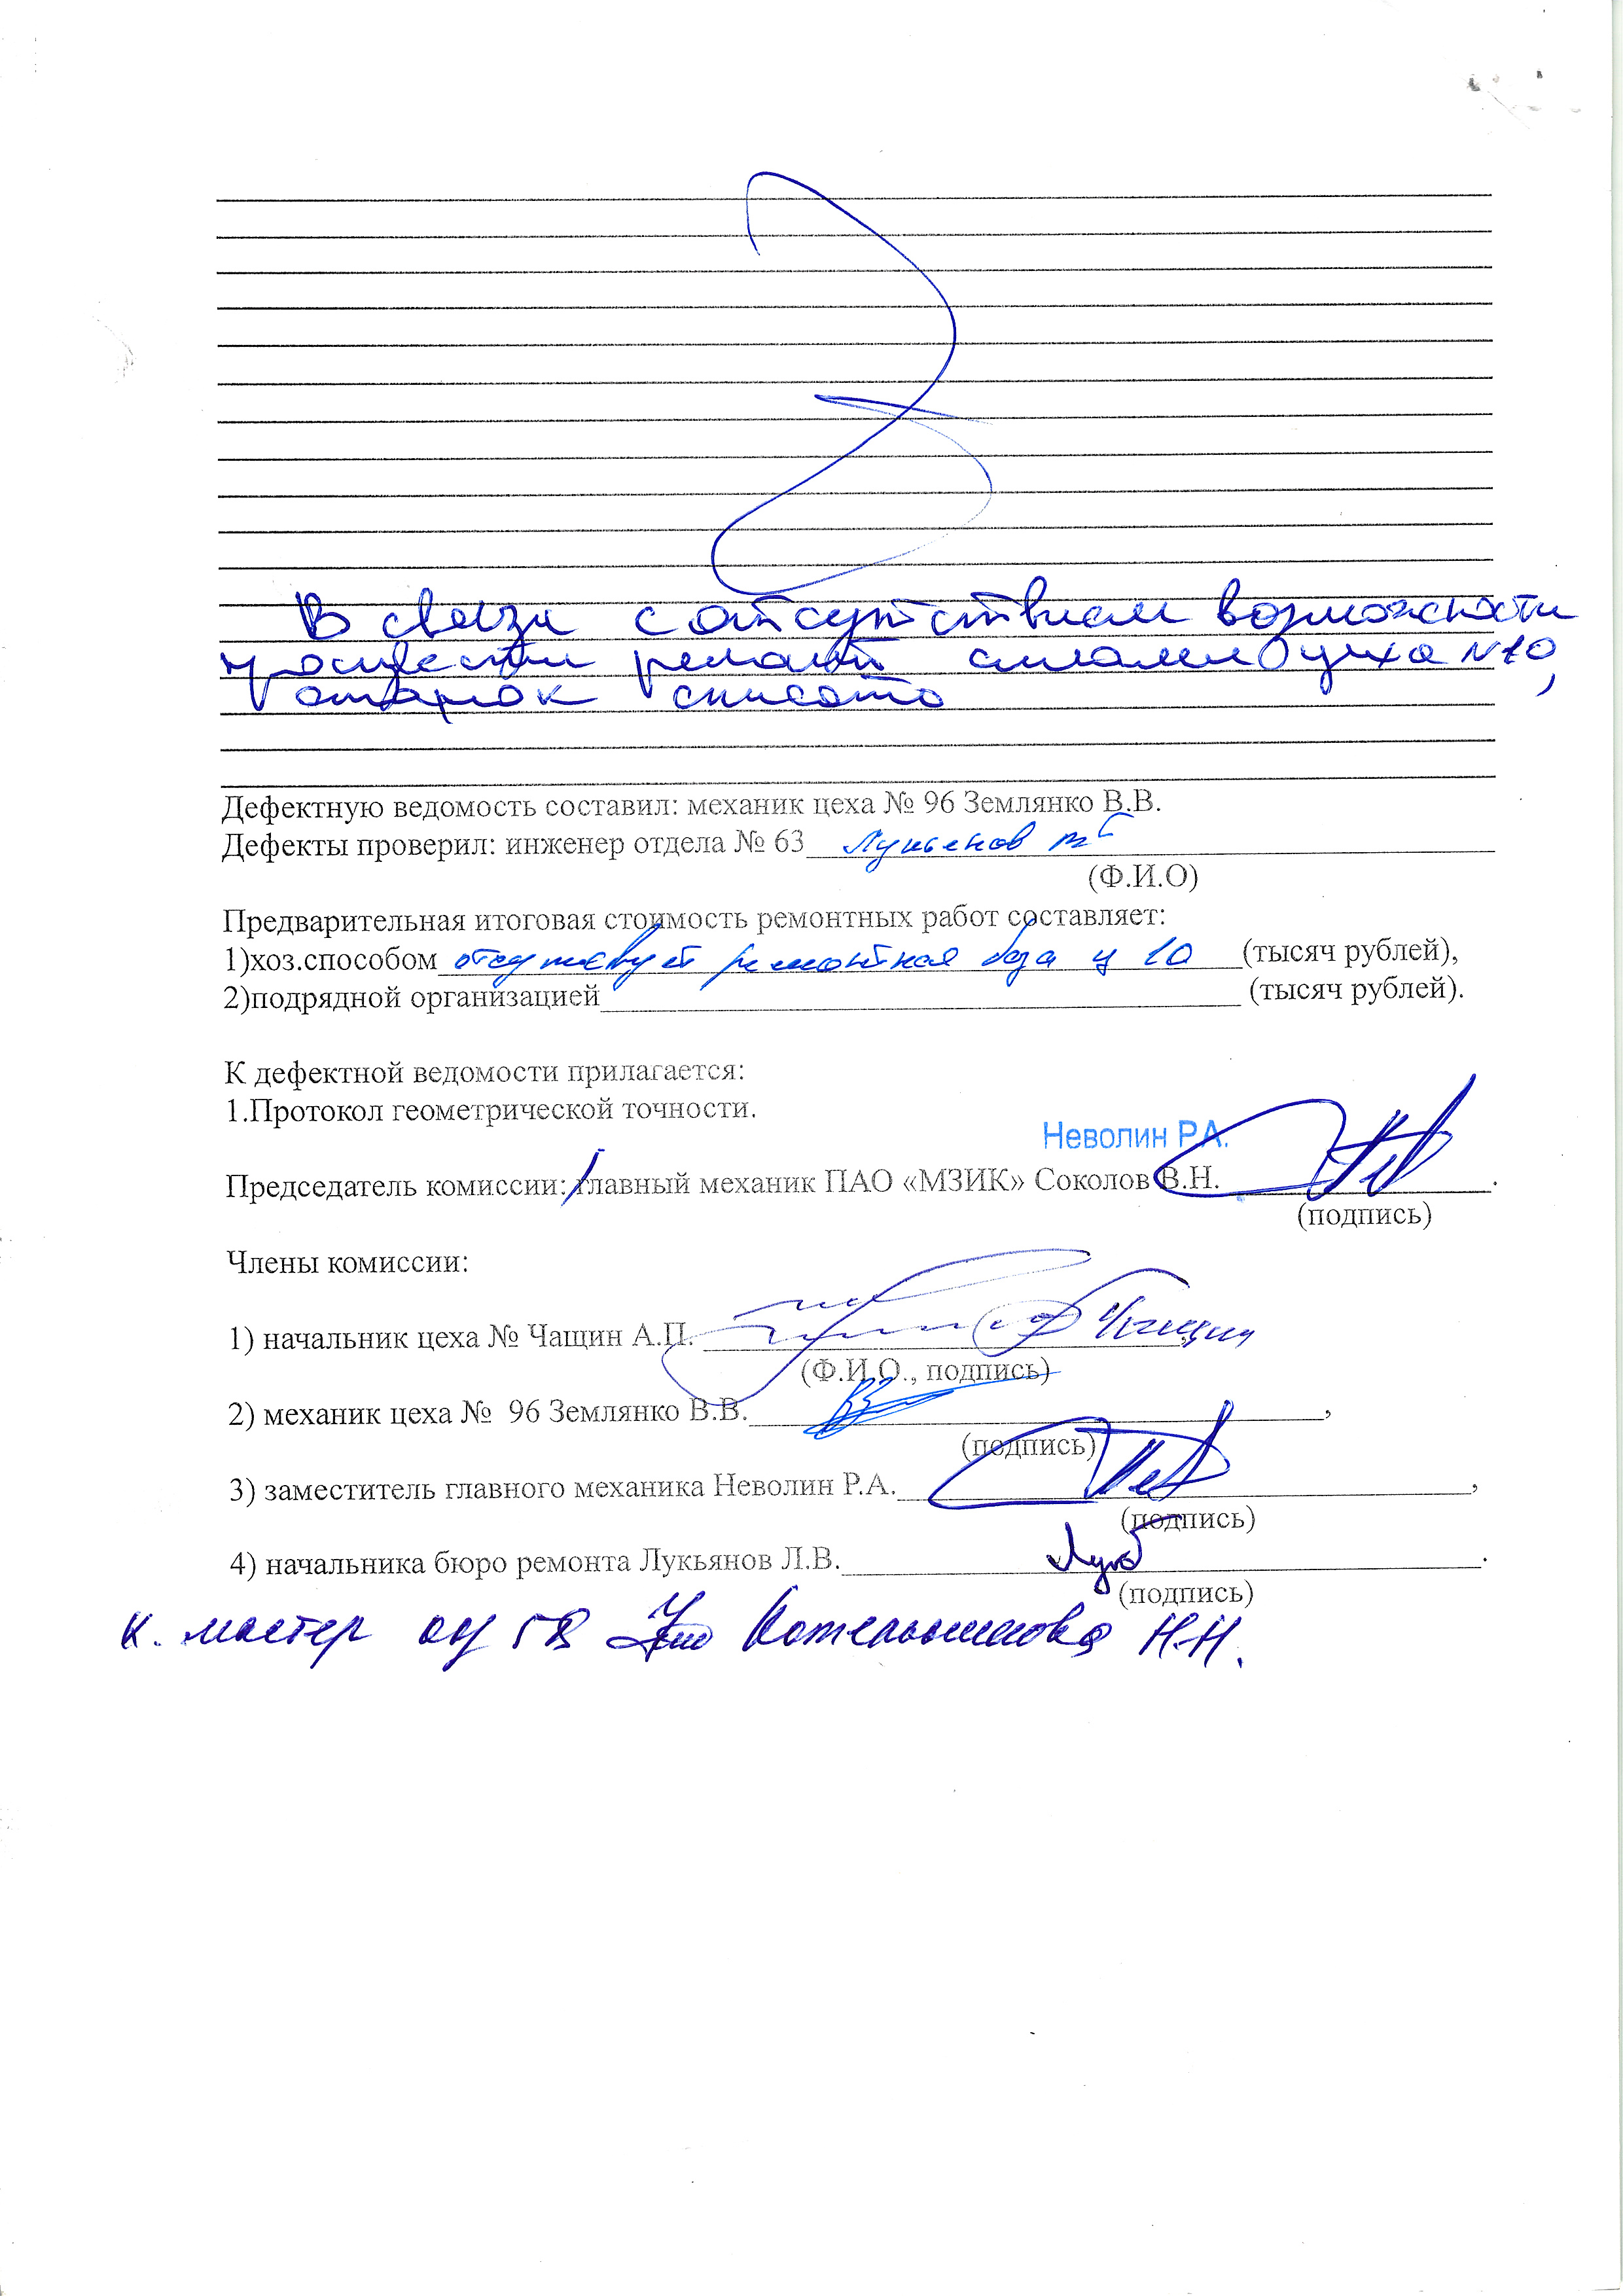 В связи с отсутствием возможности
произвести ремонт силами цеха N10,
станок списать
Дефектную ведомость составил: механик цеха № 96 Землянко В.В.
Дефекты проверил: инженер отдела № 63
(Ф.И.О)
Предварительная итоговая стоимость ремонтных работ составляет:
1)хоз.способом отсутствует ремонтная база ц 10 (тысяч рублей),
2)подрядной организацией (тысяч рублей).
К дефектной ведомости прилагается:
1.Протокол геометрической точности.
Неволин Р.А.
Председатель комиссии: главный механик ПАО «МЗИК» Соколов В.Н.
(подпись)
Члены комиссии:
1) начальник цеха № Чащин А.П. Чащин
(Ф.И.О., подпись)
2) механик цеха № 96 Землянко В.В. ,
(подпись)
3) заместитель главного механика Неволин Р.А. ,
(подпись)
4) начальника бюро ремонта Лукьянов Л.В. .
(подпись)
мастер Котельникова Н.Н.